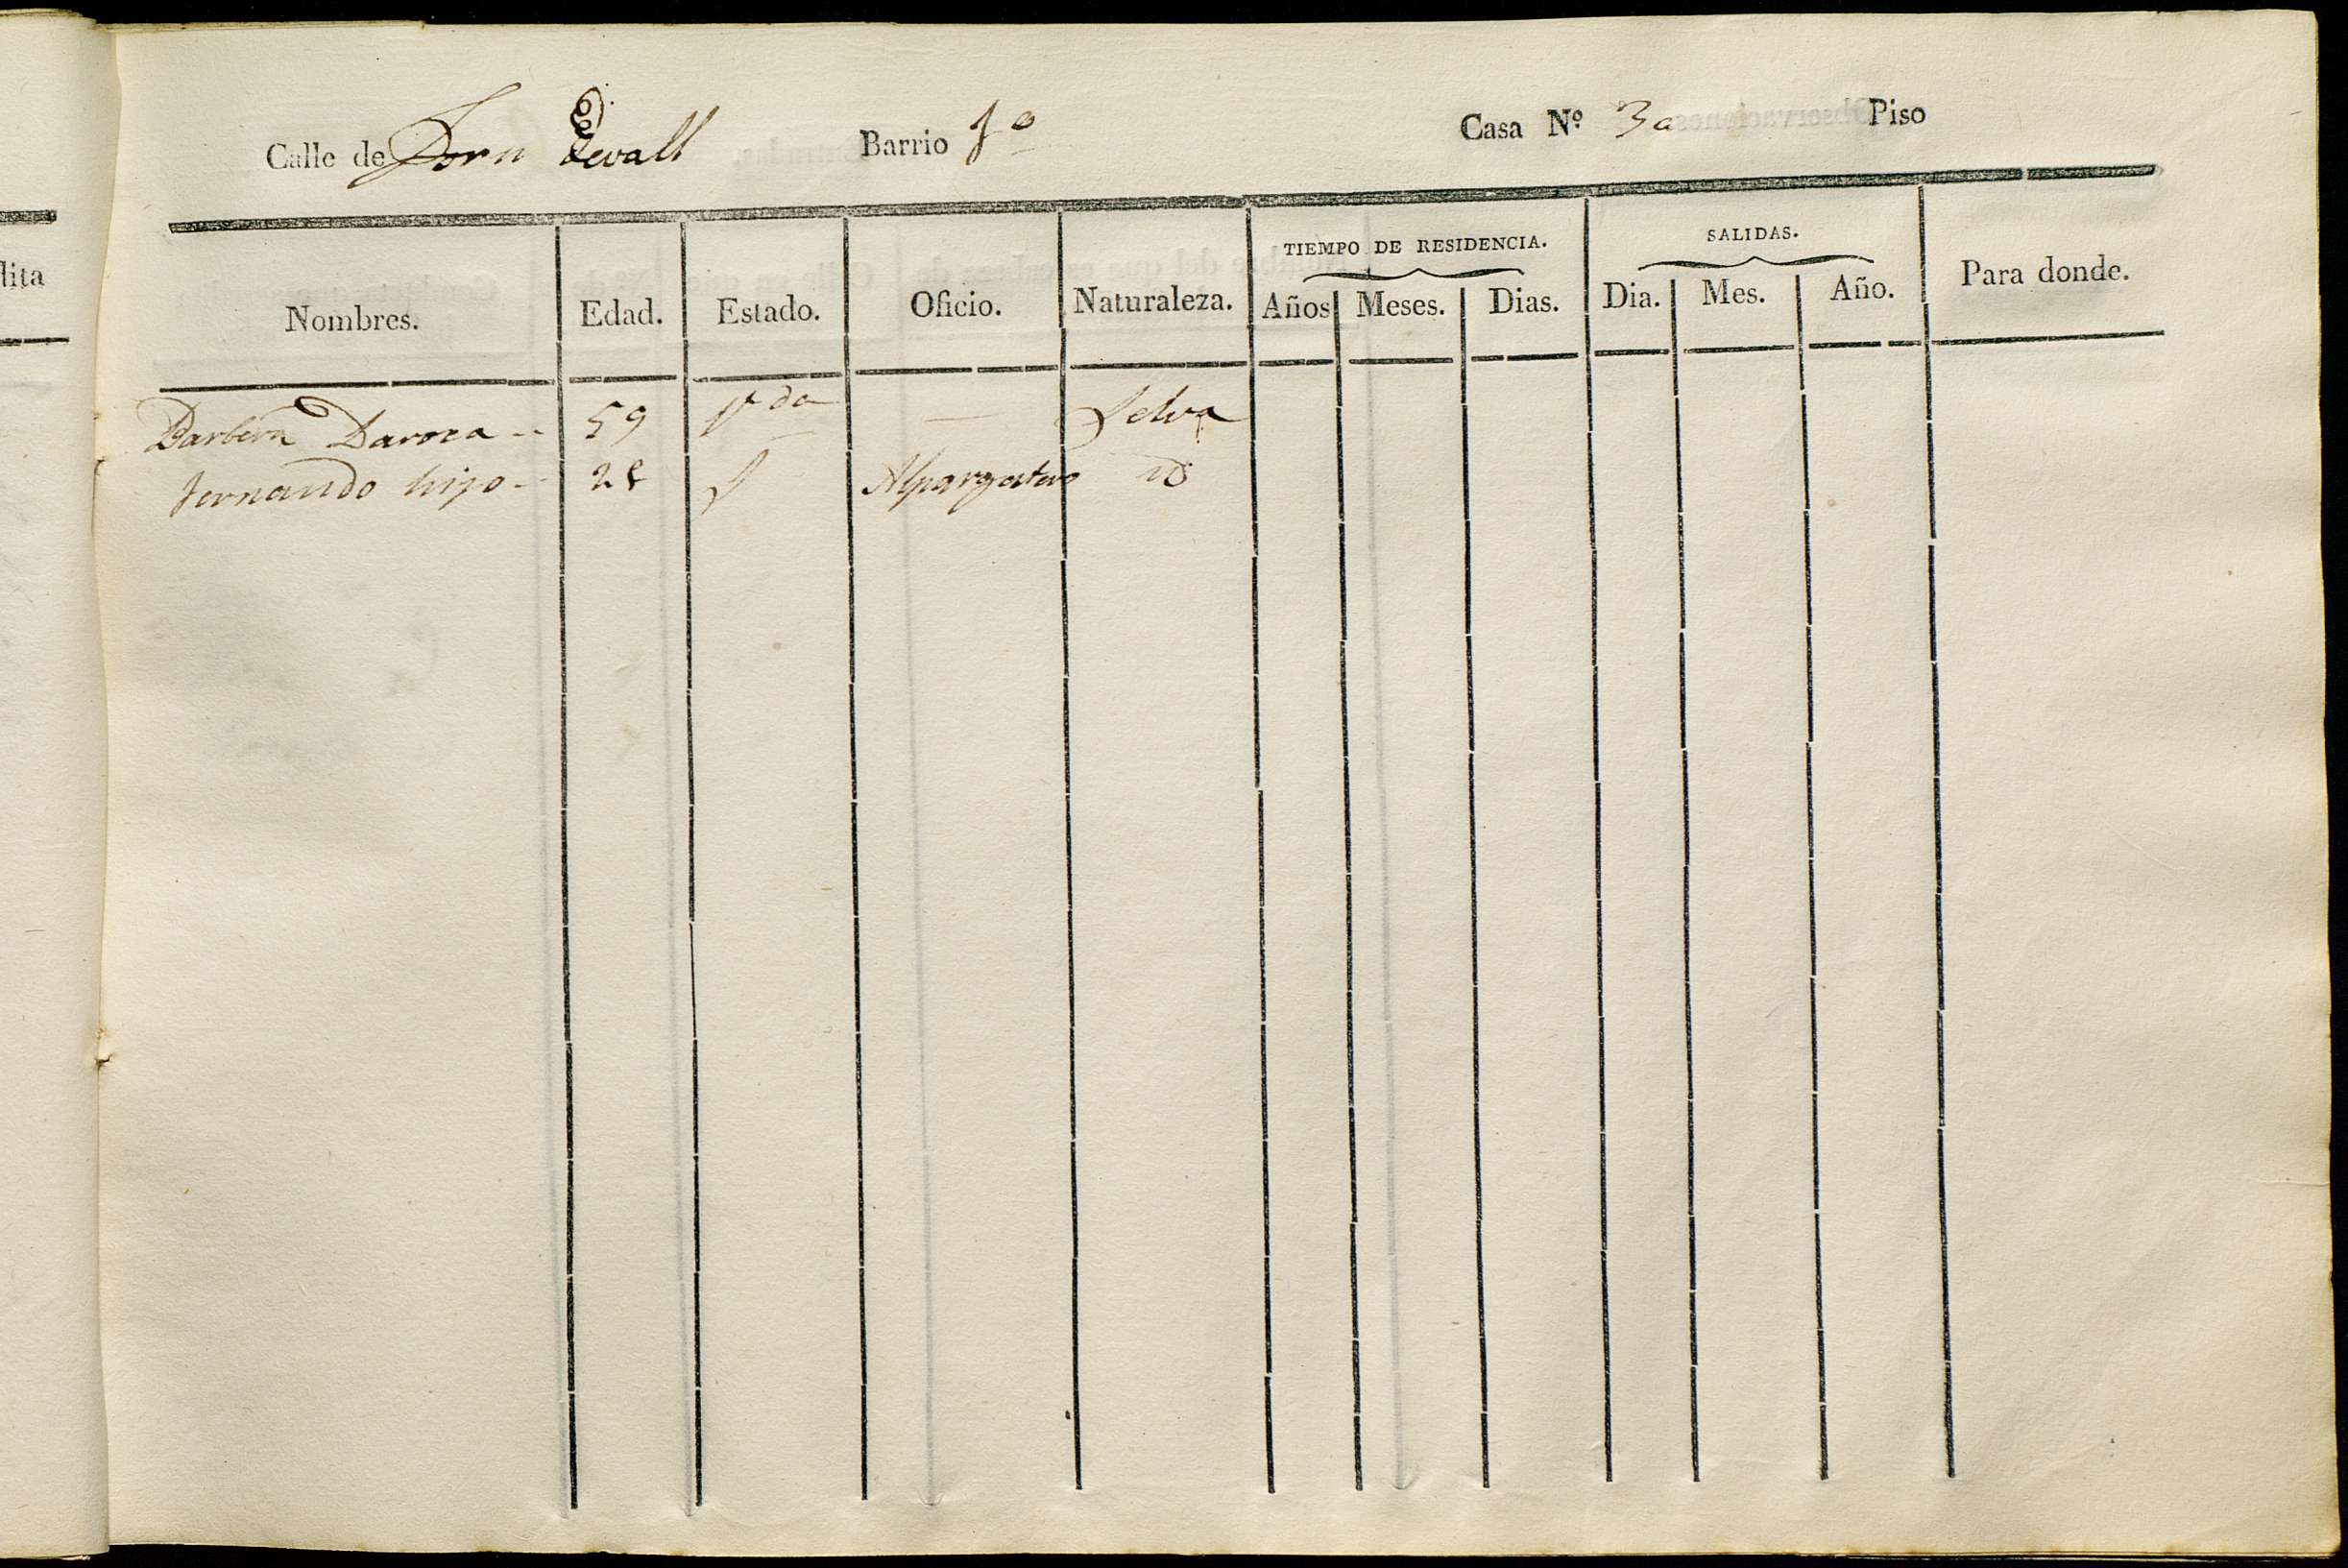 Calle de Forn Devall Barrio 1º Casa Nº 3a Piso
TIEMPO DE RESIDENCIA. SALIDAS.
Nombres. Edad. Estado. Oficio. Naturaleza. Años Meses. Dias. Dia. Mes. Año. Para donde.
Barbera Daroca -- 59 Vda — Selva
Fernando hijo -- 28 S Alpargatero id
lita